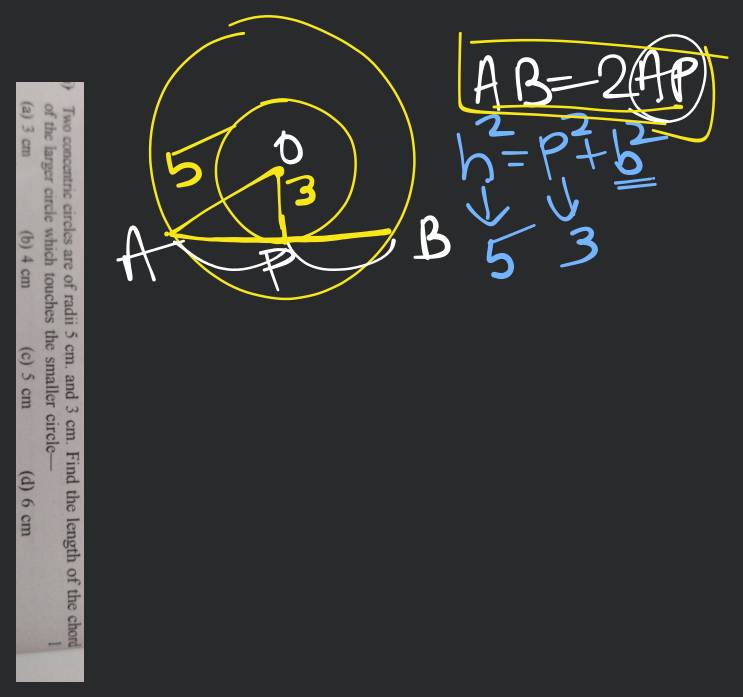 ) Two concentric circles are of radii 5 cm. and 3 cm. Find the length of the chord
of the larger circle which touches the smaller circle— 1
(a) 3 cm (b) 4 cm (c) 5 cm (d) 6 cm
5
O
3
A
P
B
AB=2AP
h²=p²+b²
5 3